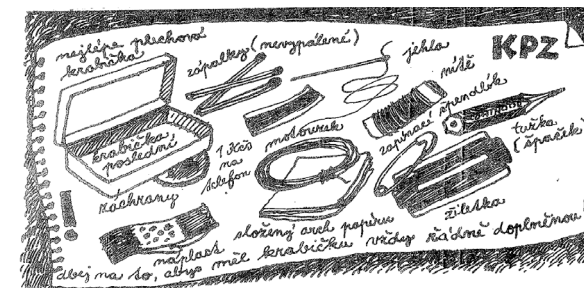 nejlépe plechová
krabička
zápalky (nevypálené)
jehla
KPZ
nitě
krabička
poslední
záchrany
1 Kčs
na
telefon
motouzek
zapínací špendlík
tužka
(špaček)
žiletka
složený arch papíru
náplast
dbej na to, abys měl krabičku vždy řádně doplněnou!